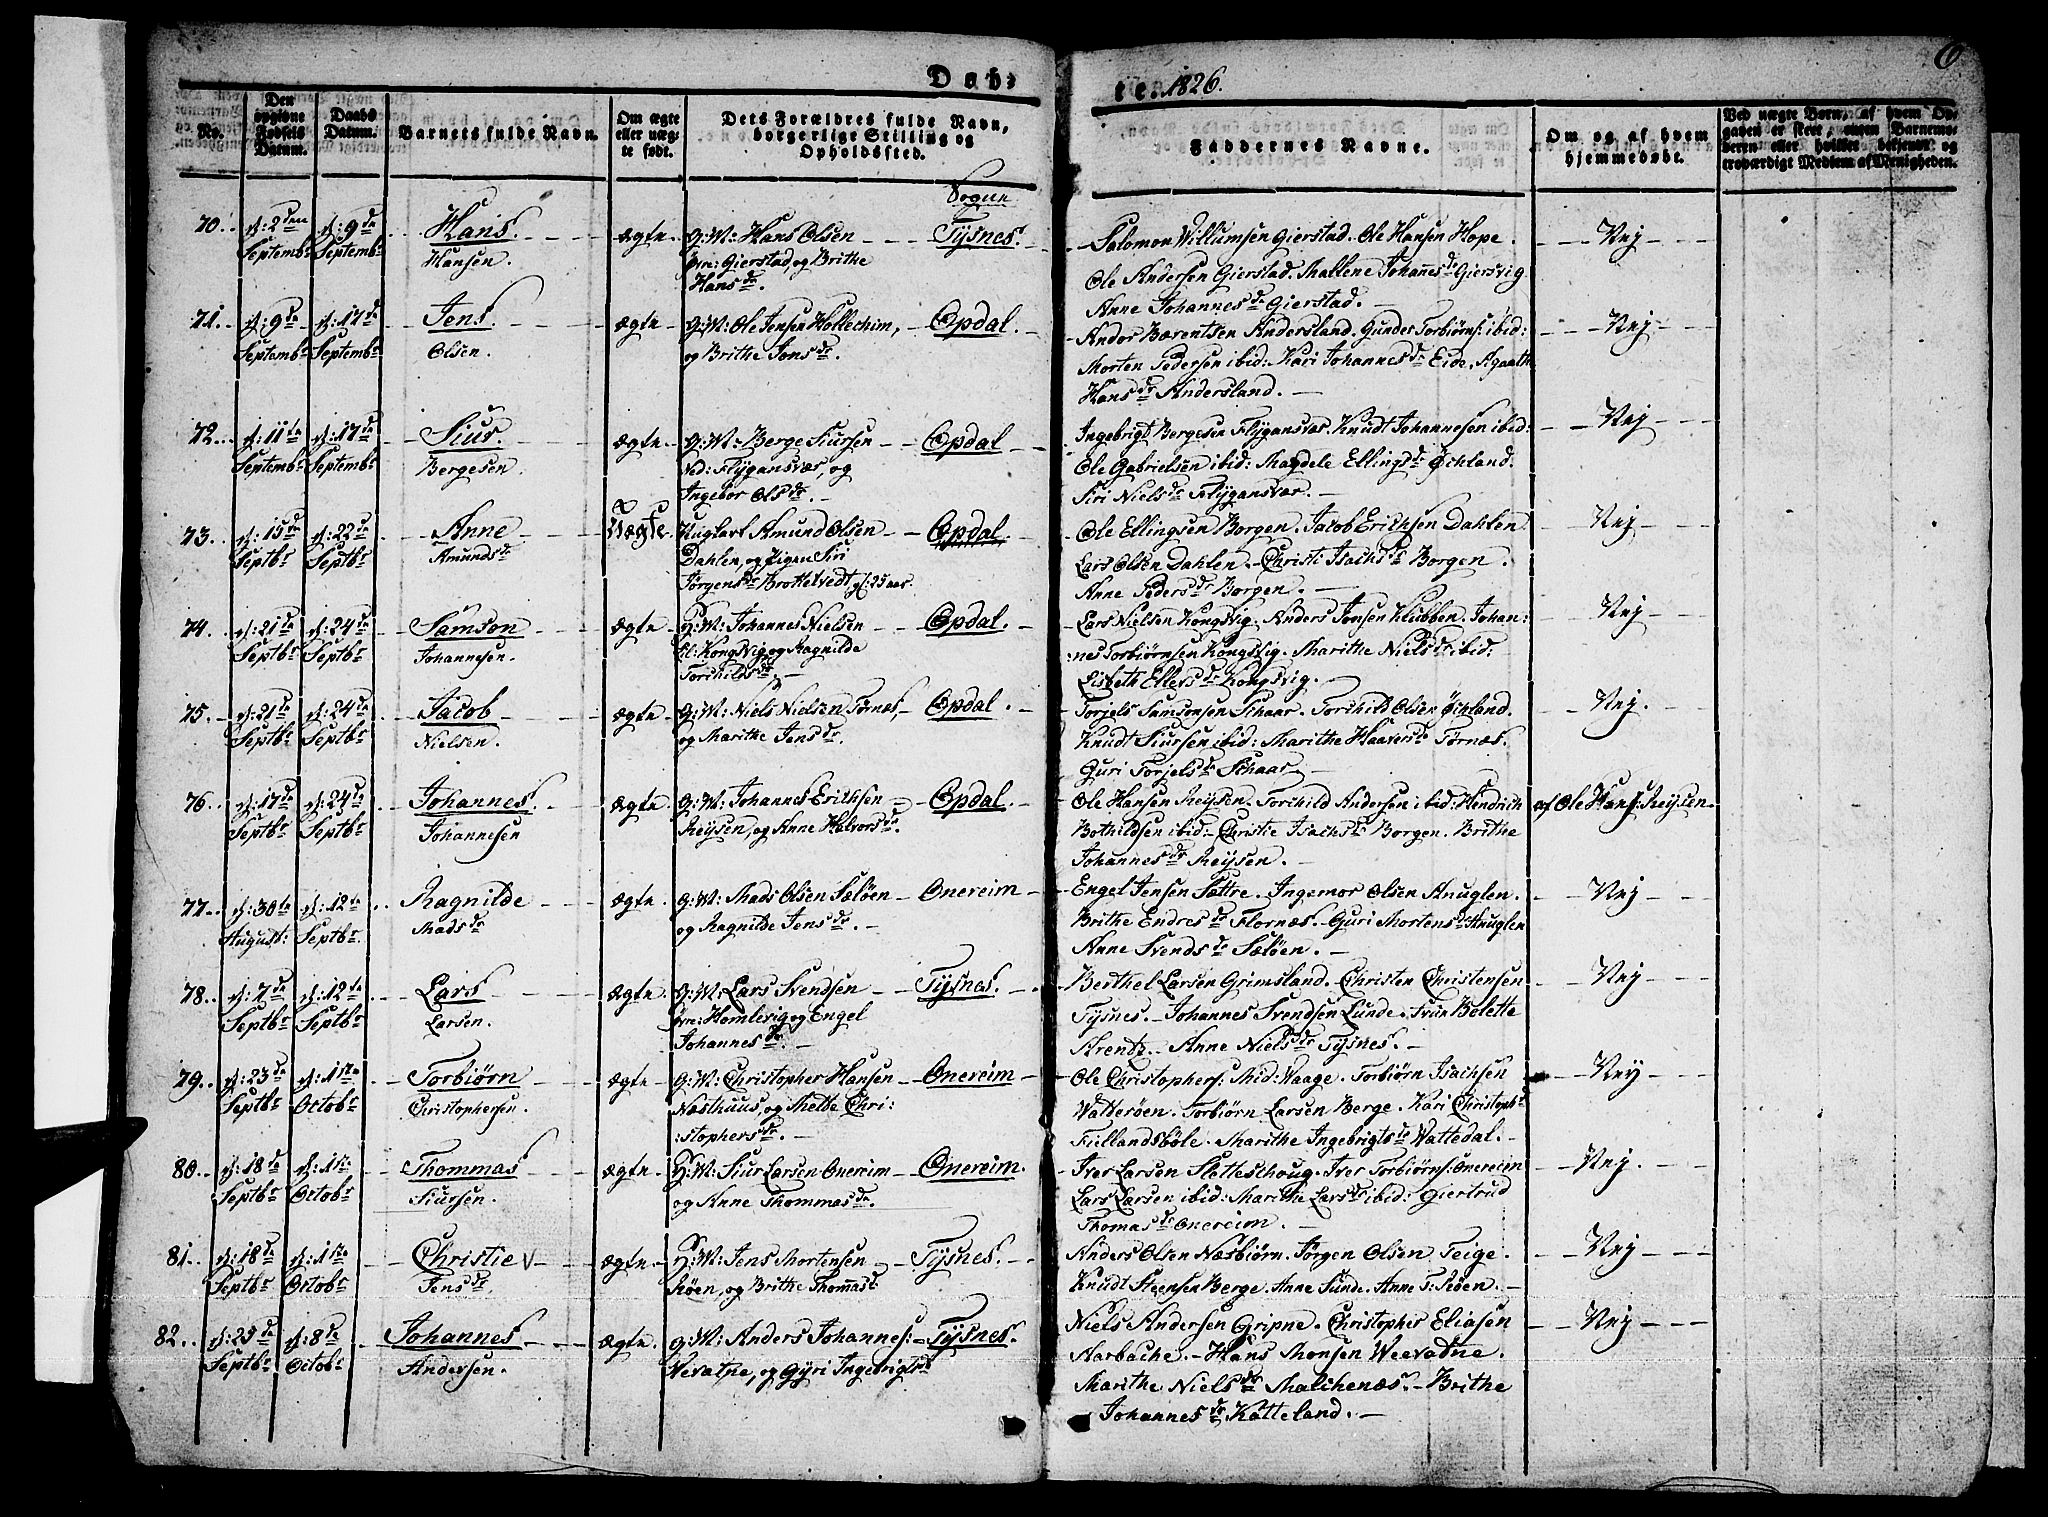 Døb-
te. 1826.
6
No.
Den opgivne Fødsels Datum.
Daabs Datum.
Barnets fulde Navn.
Om ægte eller uægte født.
Dets Forældres fulde Navn, borgerlige Stilling og Opholdssted.
Faddernes Navne.
Om og af hvem hjemmedøbt.
Ved uægte Børn, af hvem Opgaven er skeet, enten Barnemoderen eller hvilket bekjendt og troværdigt Medlem af Menigheden.
Sogne
70. d: 2den Septembr d: 9de Septembr Hans Hansen. ægte G:M: Hans Olsen øvre: Gierstad og Brithe Hansdr. Tysnes. Salomon Willumsen Gierstad. Ole Hansen Hope.
Ole Andersen Gierstad. Mallene Johannesdr Giersvig
Anne Johannesdr Gierstad. Nej
71. d: 9de Septembr d: 17de Septembr Jens Olsen. ægte G:M: Ole Jensen Hollechim, og Brithe Jonsdr. Opdal. Andor Bærentsen Andersland. Gunder Torbiørns: ibid:
Morten Pedersen ibid: Kari Johannesdr Eide. Agaathe
Hansdr Andersland. Nej
72. d: 11te Septembr d: 17de Septembr Siur. Bergesen. ægte G:M: Berge Siursen Ved: Flygansvær, og Ingebor Olsdr. Opdal Ingebrigt Bergesen Flygansvær. Knudt Johannesen ibid:
Ole Gabrielsen ibid: Magdele Ellingsdr Øchland.
Siri Nielsdr Flygansvær. Nej
73. d: 15de Septbr d: 22de Septbr Anne Amundsdr Uægte Ungkarl Amund Olsen Dahlen, og Pigen Siri Jørgensdr Brottetvedt gl: 25 aar. Opdal Ole Ellingsen Borgen. Jacob Erichsen Dahlen
Lars Olsen Dahlen. Christi Isachsdr Borgen.
Anne Pedersdr Borgen. Nej
74. d: 21de Septbr d: 24de Septbr Samson Johannesen. ægte H:M: Johannes Nielsen Kongsvig og Ragnilde Torchildsdr. Opdal. Lars Nielsen Kongsvig. Anders Jonsen Klubben. Johan:
:nes Torbiørnsen Kongsvig. Marithe Nielsdr ibid:
Lisbeth Ellersdr Kongsvig. Nej
75. d: 21de Septbr d: 24de Septbr Jacob Nielsen. ægte G:M: Niels Nielsen Tørnæs, og Marithe Jensdr. Opdal. Torjels Samsonsen Schaar. Torchild Olsen Øchland.
Knudt Siursen ibid: Marithe Haaversdr Tørnæs.
Guri Torjelsdr Schaar. Nej.
76. d: 17de Septbr d: 24de Septbr Johannes. Johannesen ægte G:M: Johannes Erichsen Reysen, og Anne Halvorsdr. Opdal. Ole Hansen Reysen. Torchild Andersen ibid: Hindrich
Bothildsen ibid: Christie Isachsdr Borgen. Brithe
Johannesdr Reysen. af Ole Hans: Reysen.
77. d: 30te August: d: 12te Septbr. Ragnilde Madsdr ægte. G:M: Mads Olsen Sæløen og Ragnilde Jensdr. Onereim Engel Jensen Sættre. Ingemor Olsen Anuglen.
Brithe Endresdr Flornæs. Guri Mortensdr Anuglen
Anne Svendsdr Sæløen. Nej
78. d: 7de Septbr d: 12te Septbr Lars Larsen. ægte. G:M: Lars Svendsen øvre: Homlevig og Engel Johannesdr. Tysnes. Berthel Larsen Grimsland. Christen Christensen
Tysnes. Johannes Svendsen Lunde. Frue Bolette
Arentz. Anne Nielsdr Tysnes. Nej
79. d: 23de Septbr d: 1ste Octobr Torbiørn Christophersen. ægte G:M: Christopher Hansen Næsthuus, og Mette Chri: :stophersdr. Onereim Ole Christophers: Mid: Waage. Torbiørn Isachsen
Watterøen. Torbiørn Larsen Berge. Kari Christophdr
Fiillandsbøle. Marithe Ingebrigtsdr Wattedal. Nej
80. d: 18de Septbr d: 1ste Octobr Thommas Siursen. ægte H:M: Siur Larsen Onereim og Anne Thommasdr. Onereim. Iver Larsen Sletteschoug. Iver Torbiørns: Onereim
Lars Larsen ibid: Marithe Larsdr ibid: Giertrud
Thomasdr Onereim. Nej.
81. d: 18de Septbr d: 1ste Octobr Christie Jensdr. ægte. H:M: Jens Mortensen Røen, og Brithe Thommasd: Tysnes. Anders Olsen Næsbiørn. Jørgen Olsen Teige.
Knudt Steensen Berge. Anne Sunde. Anne T: Seøen. Nej
82. d: 25de Septbr d: 8de Octobr Johannes Andersen. ægte. G:M: Anders Johannes: Nevalpe, og Gyri Ingebrigtsdr Tysnes. Niels Andersen Gripne. Christopher Eliasen
Aarbache. Hans Monsen Weevadne.
Marithe Nielsdr Malchenæs. Brithe
Johannesdr Katteland. Nej